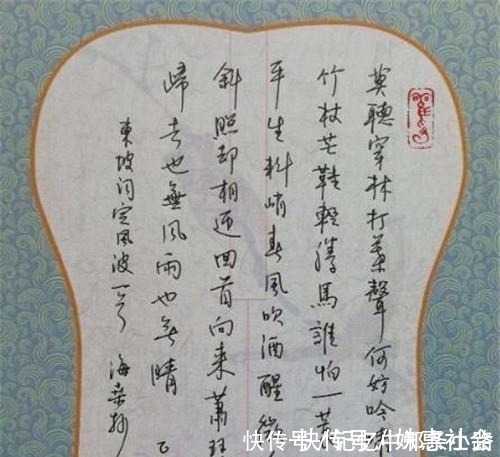 莫聽穿林打葉聲何妨吟
竹杖芒鞋輕勝馬誰怕一
平生料峭春風吹酒醒
斜照却相迎回首向来蕭
歸去也無風雨也無晴
東坡词定風波一首 海桑抄
快传号